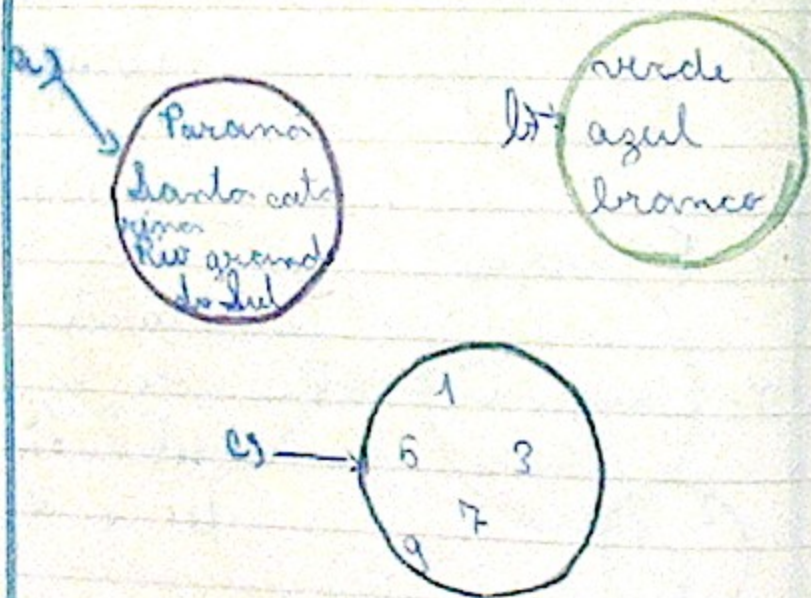 a)
Paraná
Santa cata
rina
Rio grand
do Sul
b)
verde
azul
branco
c)
1
5 3
7
9